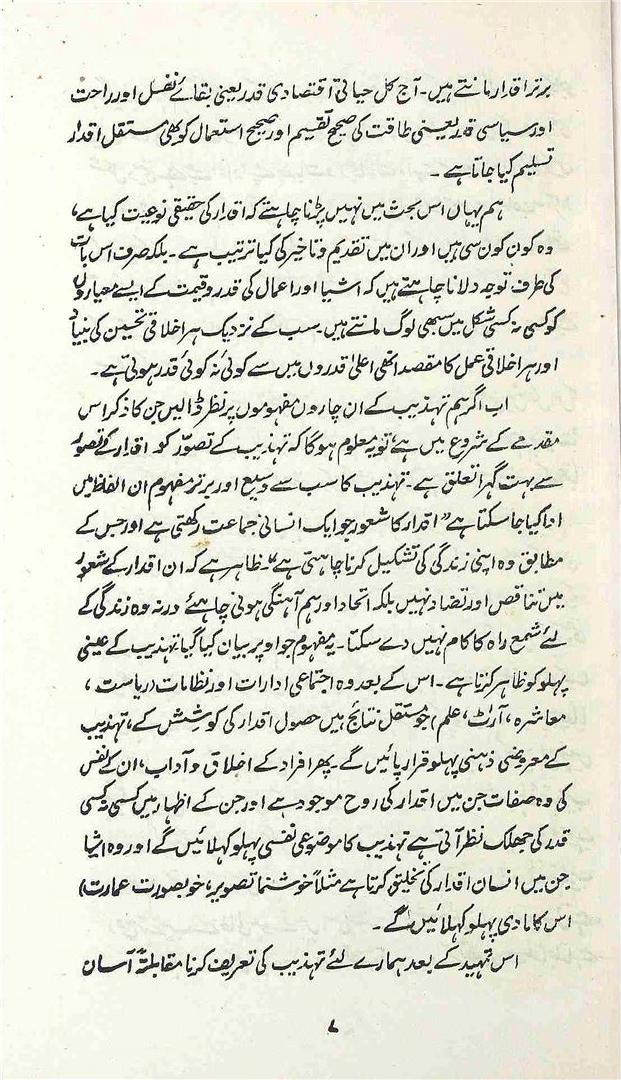 برتر اقدار مانتے ہیں۔ آج کل حیاتی اقتصادی قدر یعنی بقائے نفسل اور راحت
اور سیاسی قدر یعنی طاقت کی صحیح تقسیم اور صحیح استعمال کو بھی مستقل اقدار
تسلیم کیا جاتا ہے۔
ہم یہاں اس بحث میں نہیں پڑنا چاہتے کہ اقدار کی حقیقی نوعیت کیا ہے،
وہ کون کون سی ہیں اور ان میں تقدیم و تاخیر کی کیا ترتیب ہے۔ بلکہ صرف اس بات
کی طرف توجہ دلانا چاہتے ہیں کہ اشیا اور اعمال کی قدر و قیمت کے ایسے معیاروں
کو کسی نہ کسی شکل میں سبھی لوگ مانتے ہیں۔ سب کے نزدیک ہر اخلاقی تحسین کی بنیاد
اور ہر اخلاقی عمل کا مقصد انھی اعلیٰ قدروں میں سے کوئی نہ کوئی قدر ہوتی ہے۔
اب اگر ہم تہذیب کے ان چاروں مفہوموں پر نظر ڈالیں جن کا ذکر اس
مقدمے کے شروع میں ہے تو یہ معلوم ہوگا کہ تہذیب کے تصوّر کو اقدار کے تصوّر
سے بہت گہرا تعلق ہے۔ تہذیب کا سب سے وسیع اور برتر مفہوم ان الفاظ میں
ادا کیا جا سکتا ہے "اقدار کا شعور جو ایک انسانی جماعت رکھتی ہے اور جس کے
مطابق وہ اپنی زندگی کی تشکیل کرنا چاہتی ہے" ظاہر ہے کہ ان اقدار کے شعور
میں تناقص اور تضاد نہیں بلکہ اتحاد اور ہم آہنگی ہونی چاہئے ورنہ وہ زندگی کے
لئے شمع راہ کا کام نہیں دے سکتا۔ یہ مفہوم جو اوپر بیان کیا گیا تہذیب کے عینی
پہلو کو ظاہر کرتا ہے۔ اس کے بعد وہ اجتماعی ادارات اور نظامات (ریاست،
معاشرہ، آرٹ، علم) جو مستقل نتائج ہیں حصول اقدار کی کوشش کے، تہذیب
کے معروضی ذہنی پہلو قرار پائیں گے۔ پھر افراد کے اخلاق و آداب، ان کے نفس
کی وہ صفات جن میں اقدار کی روح موجود ہے اور جن کے اظہار میں کسی نہ کسی
قدر کی جھلک نظر آتی ہے تہذیب کا موضوعی نفسی پہلو کہلائیں گے اور وہ اشیا
جن میں انسان اقدار کی تخلیق کرتا ہے مثلاً خوشنما تصویر، خوبصورت عمارت)
اس کا مادی پہلو کہلائیں گے۔
اس تمہید کے بعد ہمارے لئے تہذیب کی تعریف کرنا مقابلتہً آسان
۷